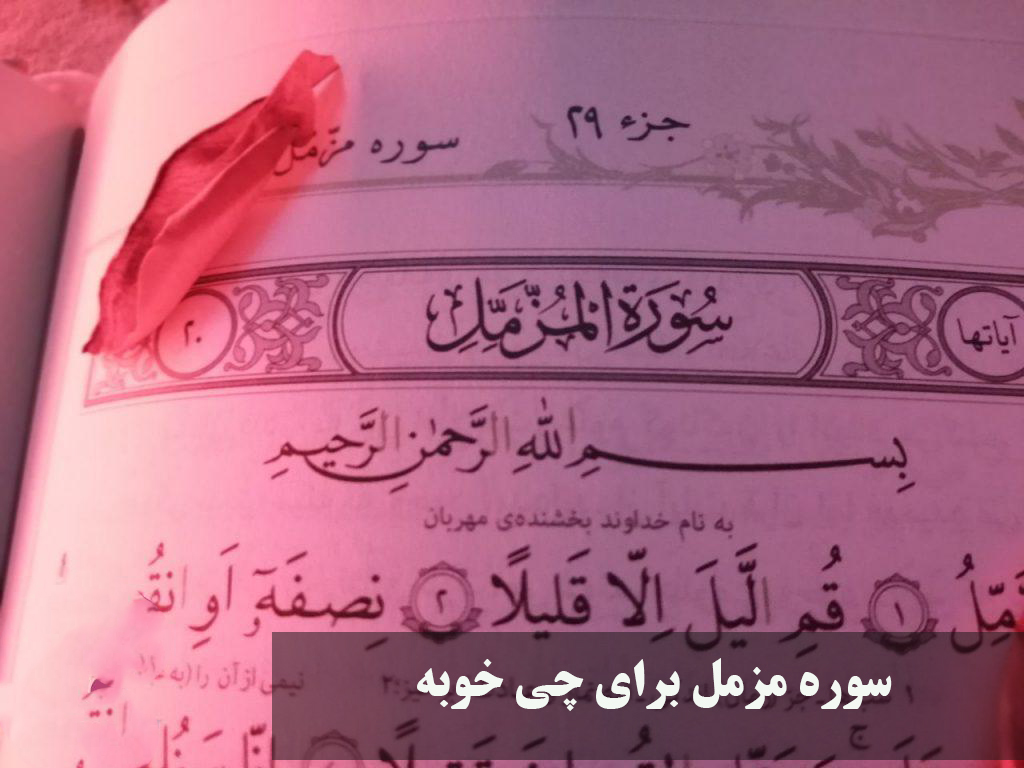 جزء ۲۹
سوره مزّمل
آیاتها
سُورَةُ الْمُزَّمِّلِ
۲۰
بِسْمِ اللهِ الرَّحْمٰنِ الرَّحيمِ
به نام خداوند بخشنده‌ی مهربان
۱ قُمِ الَّيلَ اِلّا قَليلًا ۲ نِصفَهٓ اَوِ انقُ
نیمی از آن را (به
سوره مزمل برای چی خوبه